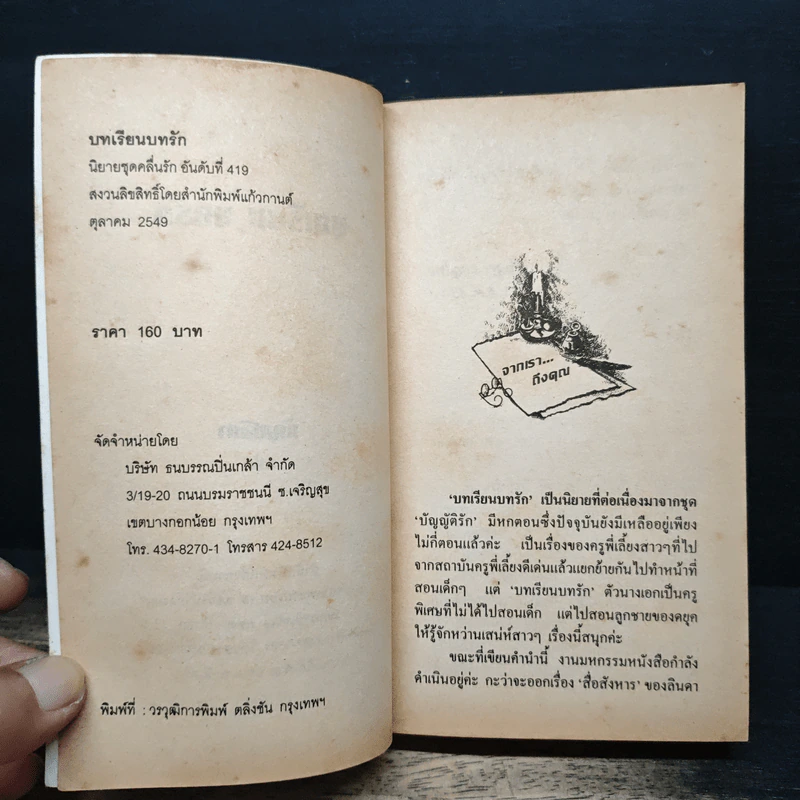 บทเรียนบทรัก
นิยายชุดคลื่นรัก อันดับที่ 419
สงวนลิขสิทธิ์โดยสำนักพิมพ์แก้วกานต์
ตุลาคม 2549
ราคา 160 บาท
จัดจำหน่ายโดย
บริษัท ธนบรรณปิ่นเกล้า จำกัด
3/19-20 ถนนบรมราชชนนี ซ.เจริญสุข
เขตบางกอกน้อย กรุงเทพฯ
โทร. 434-8270-1 โทรสาร 424-8512
พิมพ์ที่ : วรวุฒิการพิมพ์ ตลิ่งชัน กรุงเทพฯ
จากเรา...
ถึงคุณ
‘บทเรียนบทรัก’ เป็นนิยายที่ต่อเนื่องมาจากชุด
‘บัญญัติรัก’ มีหกตอนซึ่งปัจจุบันยังมีเหลืออยู่เพียง
ไม่กี่ตอนแล้วค่ะ เป็นเรื่องของครูพี่เลี้ยงสาวๆที่ไป
จากสถาบันครูพี่เลี้ยงดีเด่นแล้วแยกย้ายกันไปทำหน้าที่
สอนเด็กๆ แต่ ‘บทเรียนบทรัก’ ตัวนางเอกเป็นครู
พิเศษที่ไม่ได้ไปสอนเด็ก แต่ไปสอนลูกชายของดยุค
ให้รู้จักหว่านเสน่ห์สาวๆ เรื่องนี้สนุกค่ะ
ขณะที่เขียนคำนำนี้ งานมหกรรมหนังสือกำลัง
ดำเนินอยู่ค่ะ กะว่าจะออกเรื่อง ‘สื่อสังหาร’ ของลินดา